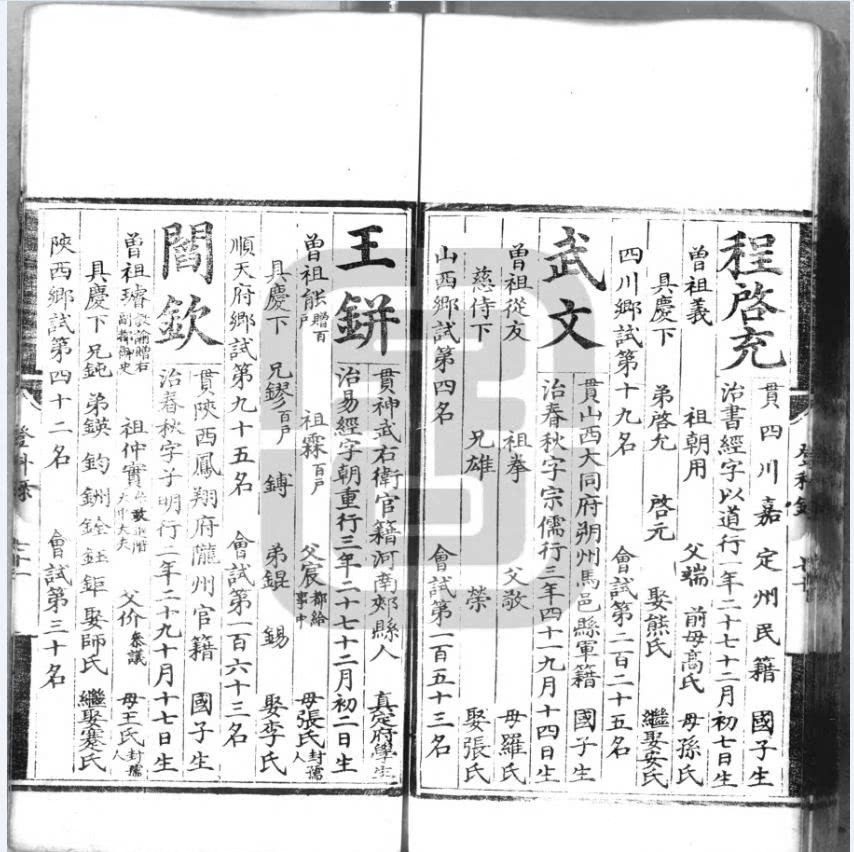 程啓充
貫四川嘉定州民籍 國子生
治書經字以道行一年二十七十二月初七日生
曾祖義 祖朝用 父瑞 前母高氏 母孫氏
具慶下 弟啓允 啓元 娶熊氏 繼娶安氏
四川鄉試第十九名 會試第二百二十五名
武文
貫山西大同府朔州馬邑縣軍籍 國子生
治春秋字宗儒行三年四十一九月十四日生
曾祖從友 祖拳 父敬 母羅氏
慈侍下 兄雄 榮 娶張氏
山西鄉試第四名 會試第一百五十三名
王鉼
貫神武右衛官籍河南郟縣人 真定府學生
治易經字朝重行三年二十七十二月初二日生
曾祖能贈百戶 祖霖百戶 父宸都給事中 母張氏封孺人
具慶下 兄鏐百戶 鎛 弟錕 錫 娶李氏
順天府鄉試第九十五名 會試第一百六十三名
閻欽
貫陝西鳳翔府隴州官籍 國子生
治春秋字子明行二年二十九十月十七日生
曾祖璿教諭贈右副都御史 祖仲實 太中大夫 父价參議 母王氏封孺人
具慶下 兄鈍 弟鍈 鈞 鍘 銓 鈺 鉅 娶師氏 繼娶蹇氏
陝西鄉試第四十二名 會試第三十名
登科錄
登科錄 七十一